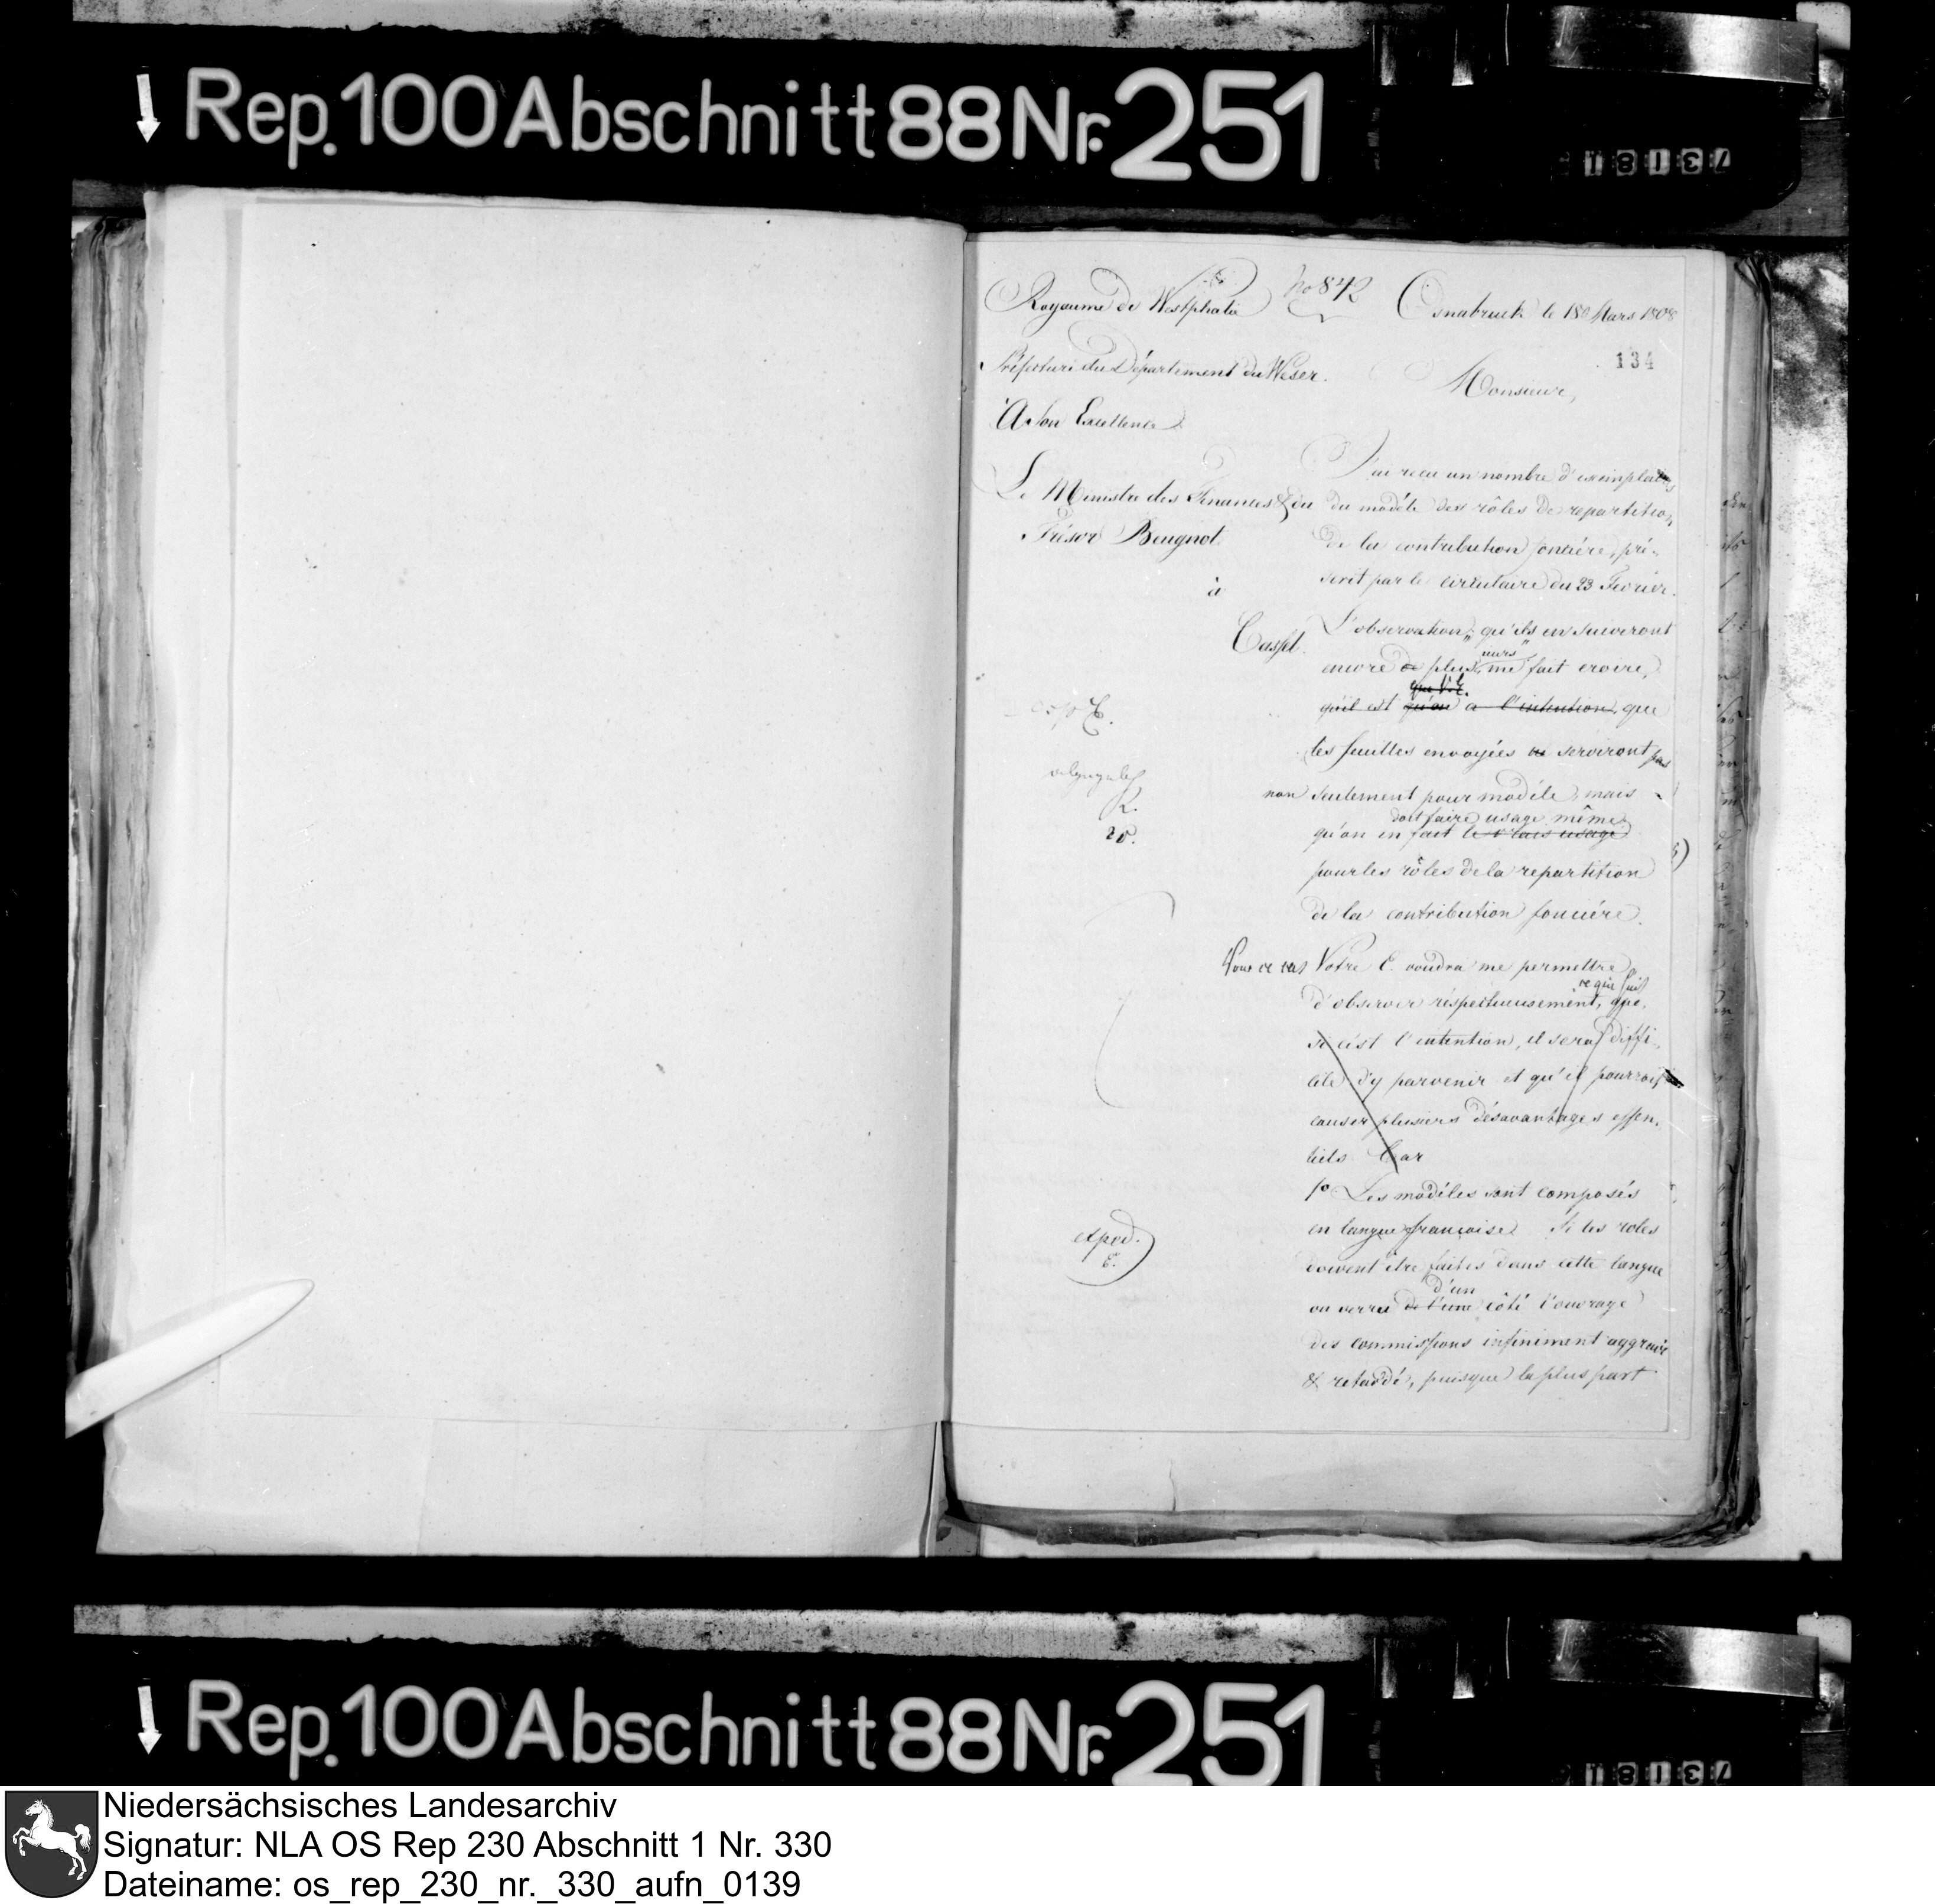 Rep. 100 Abschnitt 88 Nr. 251
73181
Royaume de Westphalie
No 842
Osnabruck le 18 Mars 1808
134
Préfecture du Département du Weser.
Monsieur,
A Son Excellence
Le Ministre des Finances & du
Trésor Beugnot
à
Cassel.
J'ai reçu un nombre d'exemplaires
du modéle des rôles de repartition
de la contribution fonciére, pré-
scrit par le circulaire du 23 Fevrier.
L'observation, qu'ils en suiveront
encore de plus, me fait croire,
que V. E.
qu'il est qu'on a l'intention, que
les feuilles envoyées ne serviront pas
non seulement pour modéle, mais
doit faire usage même
qu'on en fait usage
pour les rôles de la repartition
de la contribution fonciére.
Pour ce cas Votre E. voudra me permettre
ce qui suit
d'observer réspectueusement, que,
si c'est l'intention, il sera diffi-
cile d'y parvenir et qu'il pourroit
causer plusieurs désavantages essen-
tiels. Car
1o Les modéles sont composés
en langue française. Si les roles
doivent être faites dans cette langue
d'un
on verra de l'une côté l'ouvrage
des commissions infiniment aggravé
& retardé, puisque la plus part
exped.
E.
Rep. 100 Abschnitt 88 Nr. 251
73181
Niedersächsisches Landesarchiv
Signatur: NLA OS Rep 230 Abschnitt 1 Nr. 330
Dateiname: os_rep_230_nr._330_aufn_0139